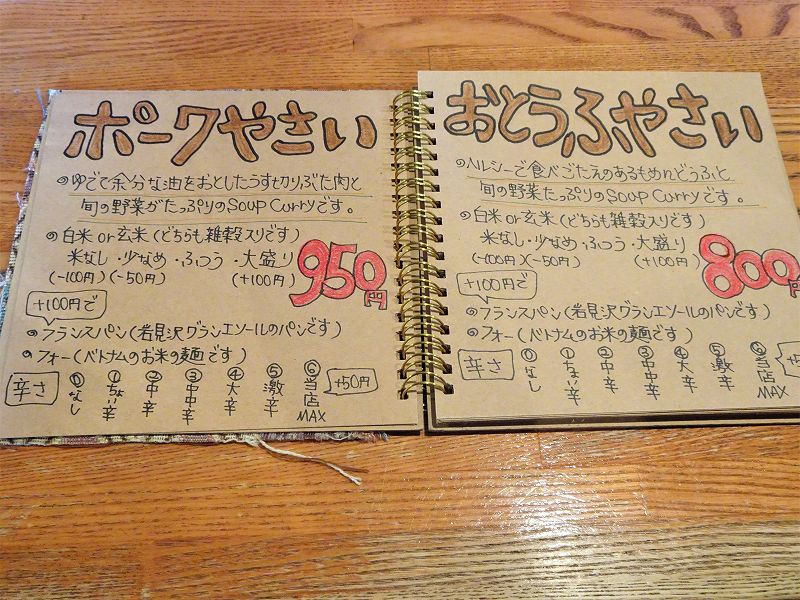 ポークやさい
ゆでて余分な油をおとしたうす切りぶた肉と
旬の野菜がたっぷりのSoup Curryです。
白米or玄米(どちらも雑穀入りです)
米なし・少なめ・ふつう・大盛り
(-100円)(-50円) (+100円)
950円
+100円で
フランスパン(岩見沢グランエソールのパンです)
フォー(ベトナムのお米の麺です)
辛さ
⓪なし
①ちょい辛
②中辛
③中中辛
④大辛
⑤激辛
⑥当店MAX
+50円
おとうふやさい
ヘルシーで食べごたえのあるもめんどうふと
旬の野菜たっぷりのSoup Curryです。
白米or玄米(どちらも雑穀入りです)
米なし・少なめ・ふつう・大盛り
(-100円)(-50円) (+100円)
800円
+100円で
フランスパン(岩見沢グランエソールのパンです)
フォー(ベトナムのお米の麺です)
辛さ
⓪なし
①ちょい辛
②中辛
③中中辛
④大辛
⑤激辛
⑥当店MAX